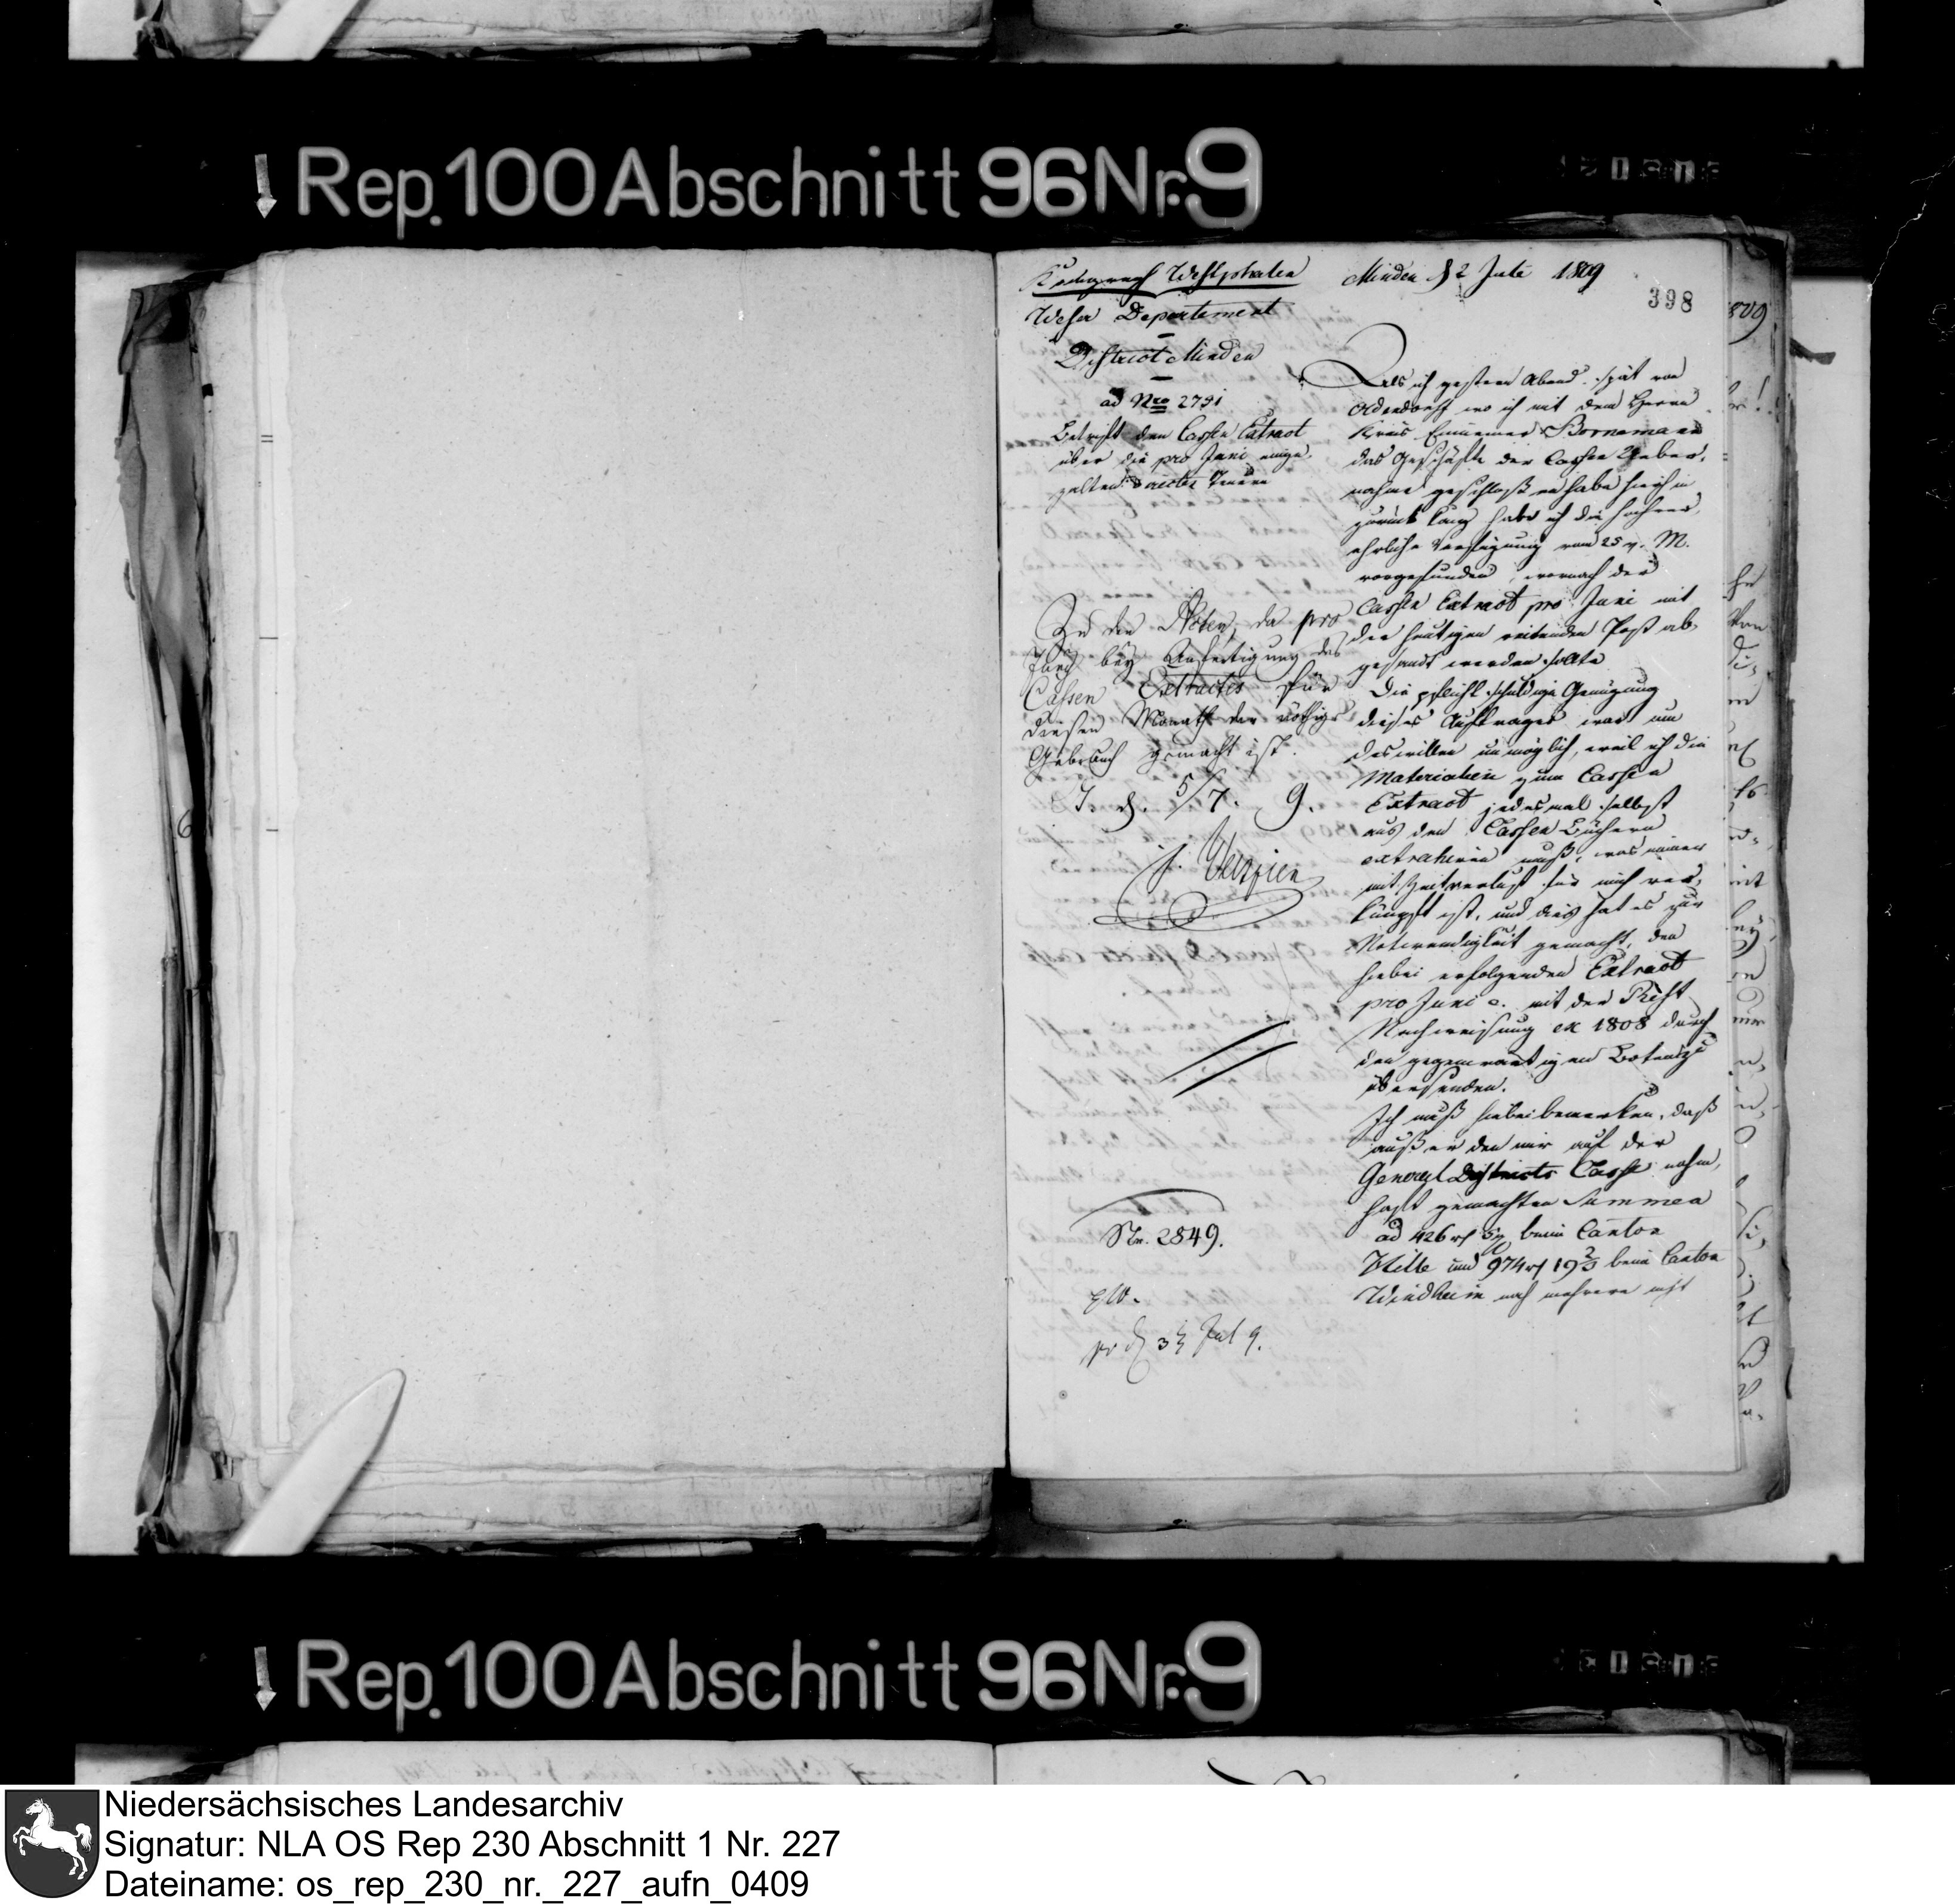 Rep. 100 Abschnitt 96 Nr. 9
Königreich Westphalen
Weser Departement
District Minden
ad Nro 2791
Betrifft den Cassen Extract
über die pro Juni einge-
zalten directen Steuern
Minden d 2 Juli 1809
398
Als ich gestern Abend spät von
Oldendorff wo ich mit dem Herrn
Kreis Einnemer Bornemann
das Geschäfte der Cassen Ueber-
nahme geschloßen habe hierhin
zurück kam habe ich die
Verfügung vom 25 v. M.
vorgefunden, wornach der
Cassen Extract pro Juni mit
der heutigen reitenden Post ab-
gesandt werden sollte
Die pflichtschuldige Genügung
dieses Auftrages war um
deswillen unmöglich, weil ich die
Materialien zum Cassen
Extract jedesmal selbst
aus den Cassen Büchern
extrahiren muß, was immer
mit Zeitverlust für mich ver-
knüpft ist, und dies hat es zur
Notwendigkeit gemacht, den
hiebei erfolgenden Extract
pro Juni c. mit der Rest
Nachweisung ex 1808 durch
den gegenwärtigen Boten zu
übersenden.
Ich muß hiebei bemerken, daß
außer den mir auf der
General Districts Casse nahm-
haft gemachten Summen
ad 426 rt beim Canton
Hille und 974 rt 19 2/3 beim Canton
Windheim noch mehrere
Zu den Acten, da pro
Juny bey Anfertigung des
Cassen Extractes für
diesen Monath der nöthige
Gebrauch gemacht ist.
d. 5/7. 9.
Nr. 2849.
pr d 3 Jul 9.
Rep. 100 Abschnitt 96 Nr. 9
Niedersächsisches Landesarchiv
Signatur: NLA OS Rep 230 Abschnitt 1 Nr. 227
Dateiname: os_rep_230_nr._227_aufn_0409